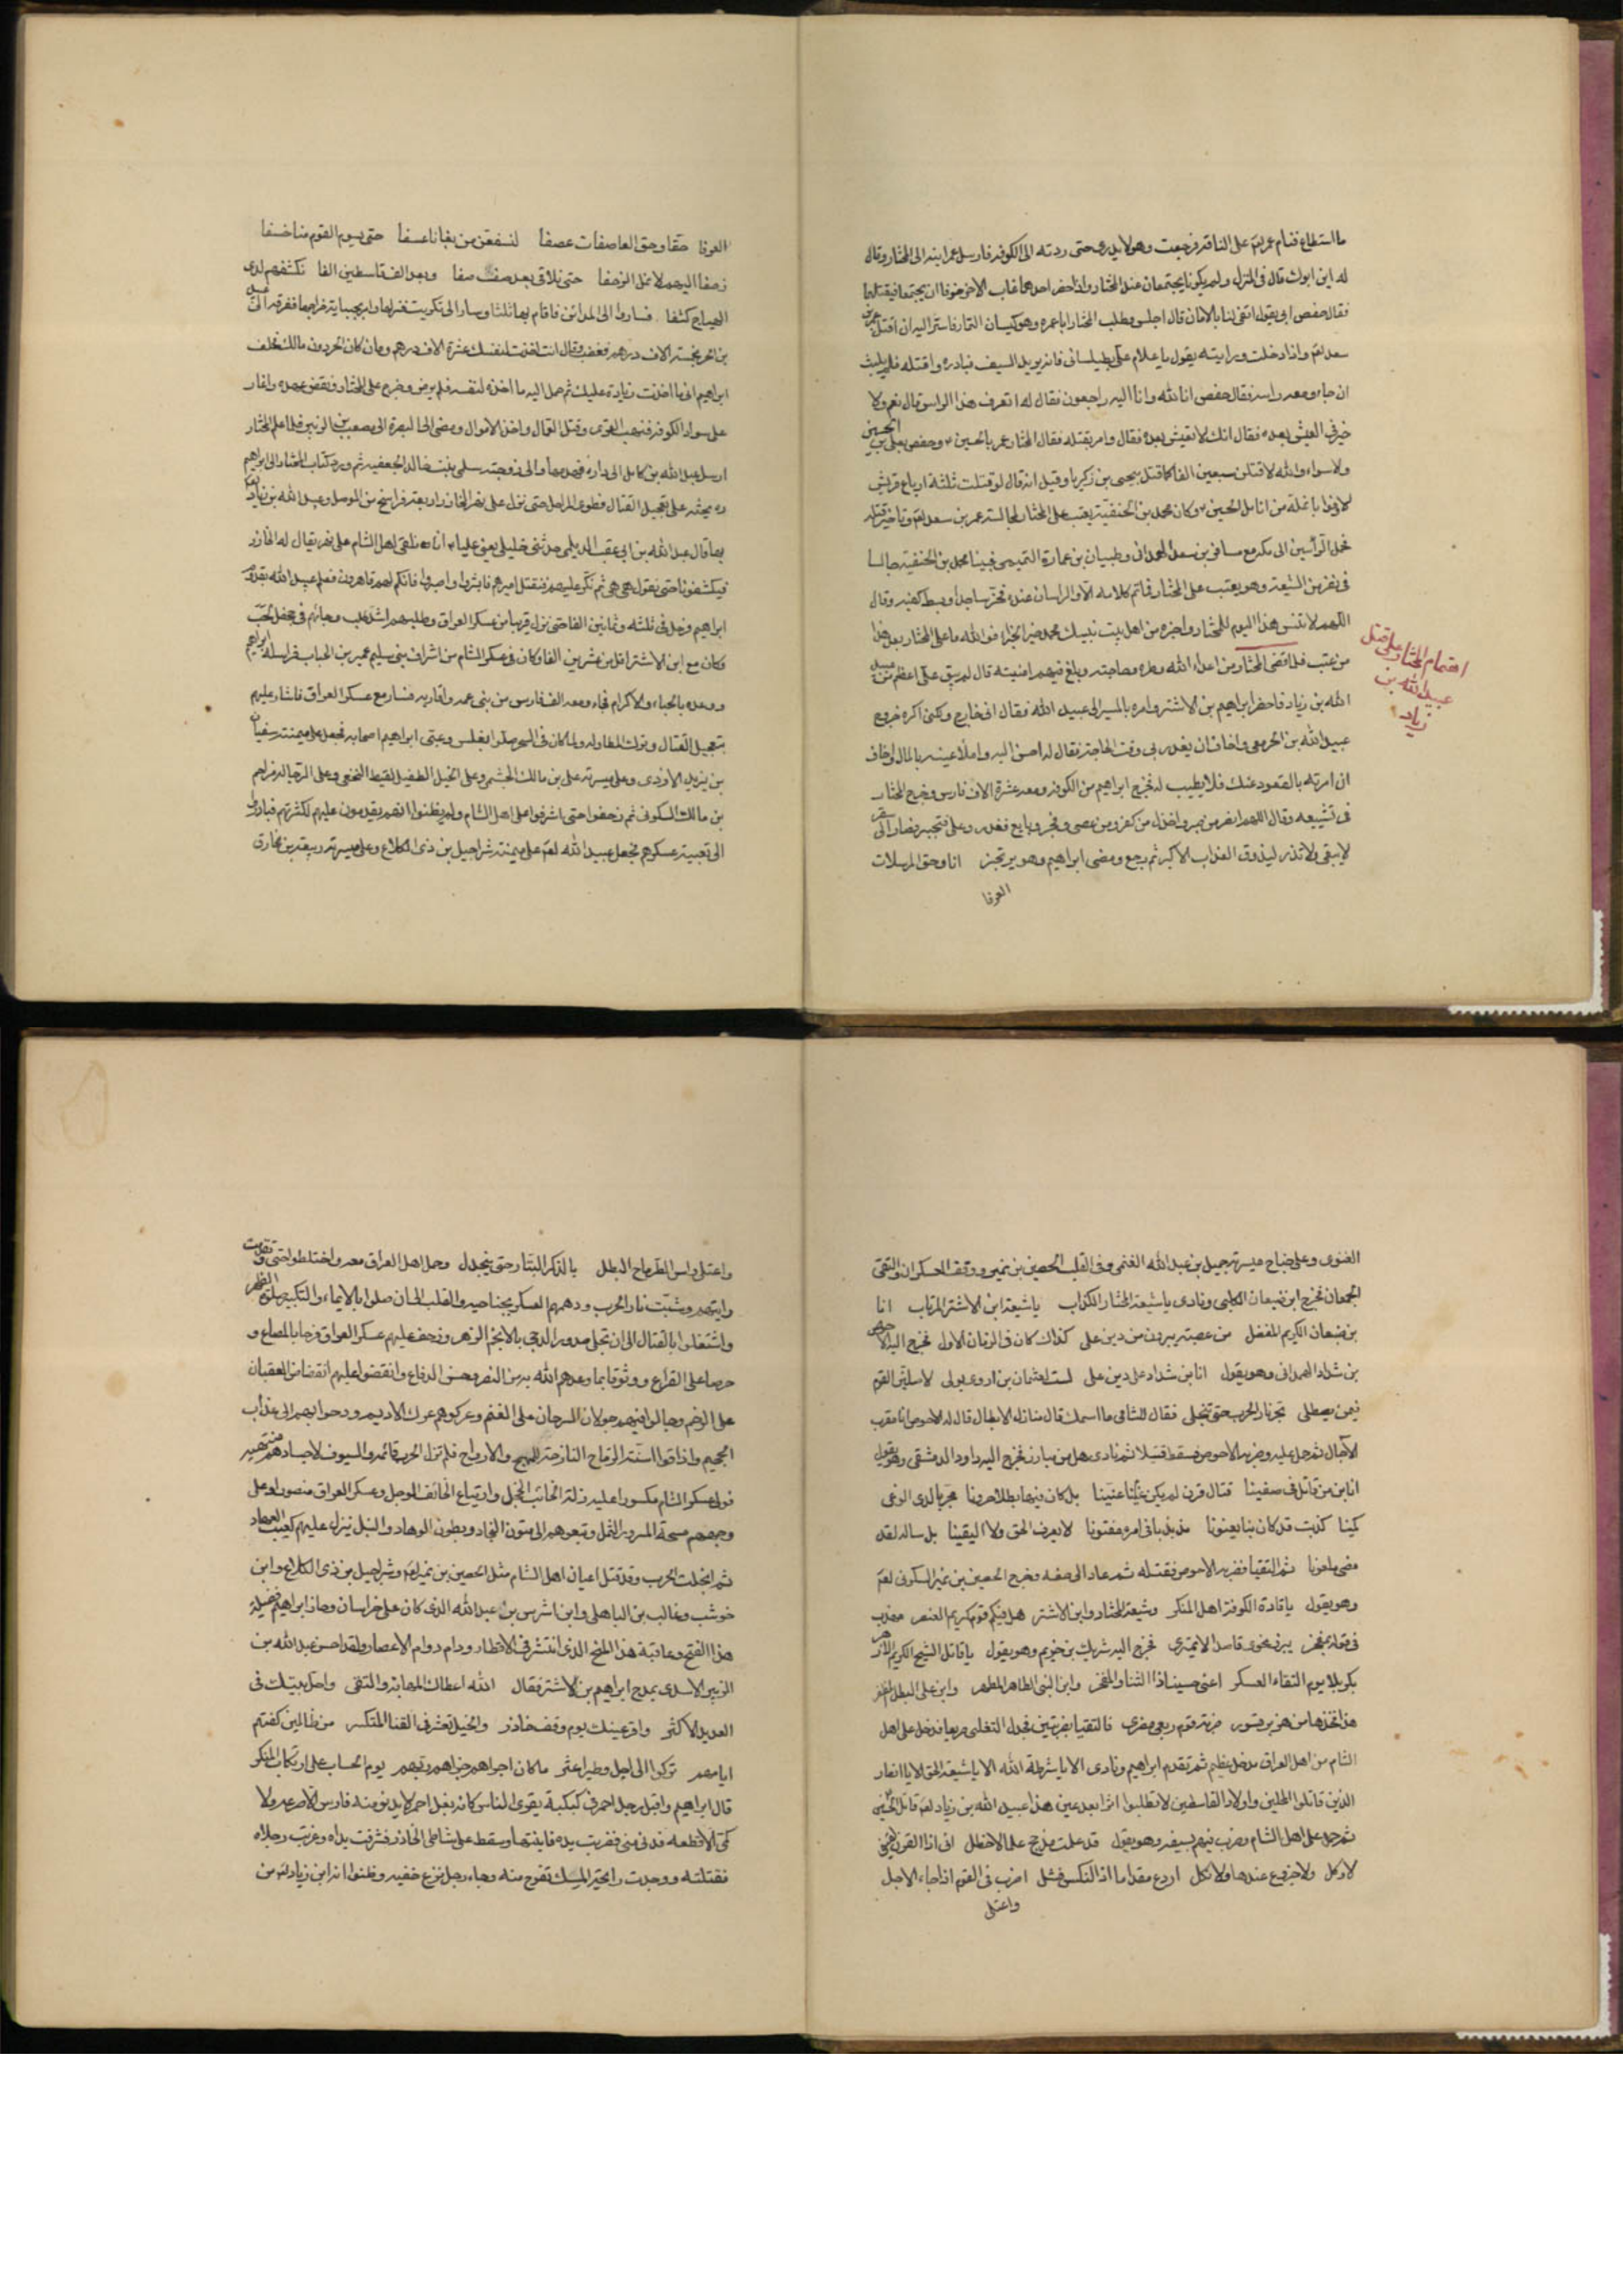 ما استطاع فنام عمر لعم على الناقة فرجعت وهو لا يدرى حتى ردته الى الكوفه فارسل عمر ابنه الى المختار وقال
له اين ابوك قال فى المنزل ولم يكونا يجتمعان عند المختار واذا حضر احدهما غاب الآخر خوفا ان يجتمعا فيقتلهما
فقال حفص ابى يقول اتفى لنا بالامان قال اجلس وطلب المختار ابا عمره وهو كيسان التمار فاسر اليه ان اقتل عمر بن
سعد لعم واذا دخلت ورايته يقول يا غلام علىّ بطيلسانى فانه يريد السيف فبادره واقتله فلم يلبث
ان جاء ومعه راسه فقال حفص انا لله وانا اليه راجعون فقال له اتعرف هذا الراس قال نعم ولا
خير فى العيش بعده فقال انك لا تعيش بعده فقال وامر بقتله فقال المختار عمر بالحسين وحفص بعلى بن الحسين
ولا سواء والله لاقتلن سبعين الفا كما قتل بيحيى بن زكريا وقيل انه قال لو قتلت ثلثة ارباع قريش
لما وفوا بانملة من انامل الحسين وكان محمد بن الحنفية يعتب على المختار لمجالسته عمر بن سعد لعم وتاخير قتله
فحمل الرأسين الى مكة مع مسافر بن سعد الهمدانى وظبيان بن عمارة التميمى فبينا محمد بن الحنفية جالسا
فى نفر من الشيعة وهو يعتب على المختار فما تم كلامه الا والراسان عنده فخر ساجدا وبسط كفيه وقال
اللهم لا تنس هذا اليوم للمختار واجزه من اهل بيت نبيك محمد خير الجزاء فو الله ما على المختار بعد هذا
من عتب فلما قضى المختار من اعداء الله وطره وحاجته وبلغ فيهم امنيته قال لم يبق علىّ اعظم من عبيد
الله بن زياد فاحضر ابراهيم بن الاشتر وامره بالمسير الى عبيد الله فقال انى خارج ولكنى اكره خروج
عبيد الله بن الحر معى واخاف ان يغدر بى وقت الحاجة فقال له احسن اليه واملأ عينه بالمال واخاف
ان امرته بالقعود عنك فلا يطيب له فخرج ابراهيم من الكوفه ومعه عشرة الاف فارس وخرج المختار
فى تشييعه وقال اللهم انصر من صبر واخذل من كفر ومن عصى وفجر وبايع فغدر وعلى وتجبر فصار الى سقر
لا تبقى ولا تذر ليذوق العذاب الاكبر ثم رجع ومضى ابراهيم وهو يرتجز انا وحق المرسلات
العرفا
اهتمام المختار على قتل
عبيد الله بن
زياد
العرفا حقا وحق العاصفات عصفا لنسفعن من بغانا عسفا حتى يسوم القوم منا خسفا
زحفا اليهم لا نمل الزحفا حتى نلاقى بعد صف صفا وبعد الف قاسطين الفا نكشفهم لدى
الهياج كشفا فسار الى المدائن فاقام بها ثلثا وسار الى تكريت فنزلها وامر بجباية خراجها ففرقه الى عبيد
بن الحر بخمسة الاف درهم فغضب وقال انت اخذت لنفسك عشرة الاف درهم وما كان الحر دون مالك فحلف
ابراهيم انى ما اخذت زيادة عليك ثم حمل اليه ما اخذه لنفسه فلم يرض وخرج على المختار ونقض عهده واغار
على سواد الكوفه فنهب القرى وقتل العمال واخذ الاموال ومضى الى البصرة الى مصعب بن الزبير فلما علم المختار
ارسل عبد الله بن كامل الى داره فهدمها والى زوجته سلمى بنت خالد الجعفيه ثم ورد كتاب المختار الى ابراهيم
يحثه على تعجيل القتال فطوى المراحل حتى نزل على نهر الخازر اربعة فراسخ من الموصل وعبيد الله بن زياد لعم
بها قال عبد الله بن ابى عقب الديلمى حدثنى خليلى يعنى عليا انا نلقى اهل الشام على نهر يقال له الخازر
فيكشفونا حتى نقول هى هى ثم نكر عليهم فنقتل اميرهم فابشروا واصبروا فانكم لهم قاهرون فعلم عبيد الله بقدوم
ابراهيم فرحل فى ثلثه وثمانين الفا حتى نزل قريبا من عسكر العراق وطلبهم اشد طلب وجاءهم فى جحفل لجب
وكان مع ابن الاشتر اقل من عشرين الفا وكان فى عسكر الشام من اشراف بنى سليم عمير بن الحباب فراسله ابراهيم
ووعده بالحباء والاكرام فجاء ومعه الف فارس من بنى عمه واقاربه فصار مع عسكر العراق فاشار عليهم
بتعجيل القتال وترك المطاوله ولما كان فى السحر صلوا بغلس وعبى ابراهيم اصحابه فجعل على ميمنته سفيان
بن يزيد الازدى وعلى ميسرته على بن مالك الجشمى وعلى الخيل الطفيل بن لقيط النخعى وعلى الرجالة مزاحم
بن مالك السكونى ثم زحفوا حتى اشرفوا على اهل الشام ولم يظنوا انهم يقدمون عليهم لكثرتهم فبادروا
الى تعبية عسكرهم فجعل عبيد الله لعم على ميمنته شراحيل بن ذى الكلاع وعلى ميسرته ربيعة بن مخارق
الغنوى وعلى جناح ميسرته جميل بن عبد الله الغنمى وفى القلب الحصين بن نمير ووقف العسكران والتقى
الجمعان فخرج ابن ضبعان الكلبى ونادى يا شيعة المختار الكذاب يا شيعة ابن الاشتر المرتاب انا
بن ضبعان الكريم المفضل من عصبة يبرون من دين على كذاك كان فى الزمان الاول فخرج اليه الاحوص
بن شداد الهمدانى وهو يقول انا بن شداد على دين على لست لعثمان بن اروى بولى لاصلين القوم
فيمن يصطلى بحر نار الحرب حتى تنجلى فقال للشامى ما اسمك قال منازل الابطال قال له الاحوص وانا مقرب
الآجال ثم حمل عليه وضربه الاحوص فسقط قتيلا ثم نادى هل من مبارز فخرج اليه داود الدمشقى وهو يقول
انا بن من قاتل فى صفينا قتال قرن لم يكن غبينا بل كان فيها بطلا حرونا مجربا لدى الوغى
كمينا كذبت قد كان بها مغبونا مذبذبا فى امره مفتونا لا يعرف الحق ولا اليقينا بل ساله لقد
مضى ملعونا ثم التقيا فضربه الاحوص فقتله ثم عاد الى صفه وخرج الحصين بن نمير السكونى لعم
وهو يقول يا قادة الكوفة اهل المنكر وشيعة المختار وابن الاشتر هل فيكم قوم كريم العنصر مهذب
فى قومه بمفخر يبرز نحوى قاصدا لا يمترى فخرج اليه شريك بن خزيم وهو يقول يا قاتل الشيخ الكريم الازهر
بكربلا يوم التقاء العسكر اعنى حسينا ذا الثنا والمفخر وابن النبى الطاهر المطهر وابن على البطل المظفر
هذا فخذها من هزبر قسور ضربة قوم ربعى مضرى فالتقيا بضربتين فجدل التغلبى صريعا فدخل على اهل
الشام من اهل العراق مدخل عظيم ثم تقدم ابراهيم ونادى الا يا شرطة الله الا يا شيعة الحق الا يا انصار
الدين قاتلوا المحلين واولاد القاسطين لا تطلبوا اثرا بعد عين هذا عبيد الله بن زياد لعم قاتل الحسين
ثم حمل على اهل الشام وضرب فيهم بسيفه وهو يقول قد علمت مذحج علما لا خطل انى اذا القرن لقينى
لا وكل ولا جزوع عندها ولا نكل اروع مقداما اذا النكس فشل اضرب فى القوم اذا جاء الاجل
واعتلى
واعتلى راس الطرماح البطل بالذكر البتار حتى ينجدل وحمل اهل العراق معه واختلطوا حتى تقدمت
رايتهم وشبت نار الحرب ودهمهم العسكر بجناحيه والقلب الى ان صلوا بالايماء والتكبير صلوة الظهر
واشتغلوا بالقتال الى ان تجلى صدور الدجى بالانجم الزهر وزحف عليهم عسكر العراق فرحا بالمصاع و
حرصا على القراع ووثوقا بما وعدهم الله به من النصر وحسن الدفاع وانقضوا عليهم انقضاض العقبان
على الرخم وجالوا فيهم جولان السرحان على الغنم وعركوهم عرك الاديم ودحوا بهم الى عذاب
الجحيم واذاقوا السنة الرماح النازحة للمهج والارواح فلم تزل الحرب قائمه والسيوف لاجسادهم منتهبه
فولى عسكر الشام مكسورا عليه ذلة الخائب الخجل وارتياع الخائف الوجل وعسكر العراق منصورا وعلى
وجوههم مسحة المسرور الثمل وتبعوهم الى متون النجاد وبطون الوهاد والنبل ينزل عليهم كغيث العهاد
ثم انجلت الحرب وقد قتل اعيان اهل الشام مثل الحصين بن نمير لعم وشراحيل بن ذى الكلاع وابن
حوشب وغالب بن الباهلى وابن اشرس بن عبد الله الذى كان على خراسان وحاز ابراهيم فضيلة
هذا الفتح وعاقبة هذا المنح الذى انتشر فى الاقطار ودام دوام الاعصار ولقد احسن عبد الله بن
الزبير الاسدى يمدح ابراهيم بن الاشتر فقال الله اعطاك المهابة والتقى واحل بيتك فى
العديد الاكثر واقر عينك يوم وقعة خاذر والخيل تعثر فى القنا المتكسر من ظالمين كفتهم
ايامهم تركوا الى اجل وطير اعثر ما كان اجراهم جزاهم ربهم يوم الحساب على ارتكاب المنكر
قال ابراهيم واقبل رجل احمر فى كبكبة يقوى الناس كانه بغل احمر لا يدنو منه فارس الا صرعه ولا
كمى الا قطعه فدنى منى فضربت يده فابنتها وسقط على شاطى الخاذر فشرقت يداه وغربت رجلاه
فقتلته ووجدت رائحة المسك تفوح منه وجاء رجل نزع خفيه وظنوا انه ابن زياد لعم من